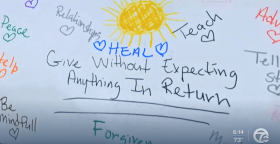 Relationships
Teach
Peace
♡HEAL♡
Give Without Expecting
Anything In Return
Be
mindfull
Forgive
6:14
73°